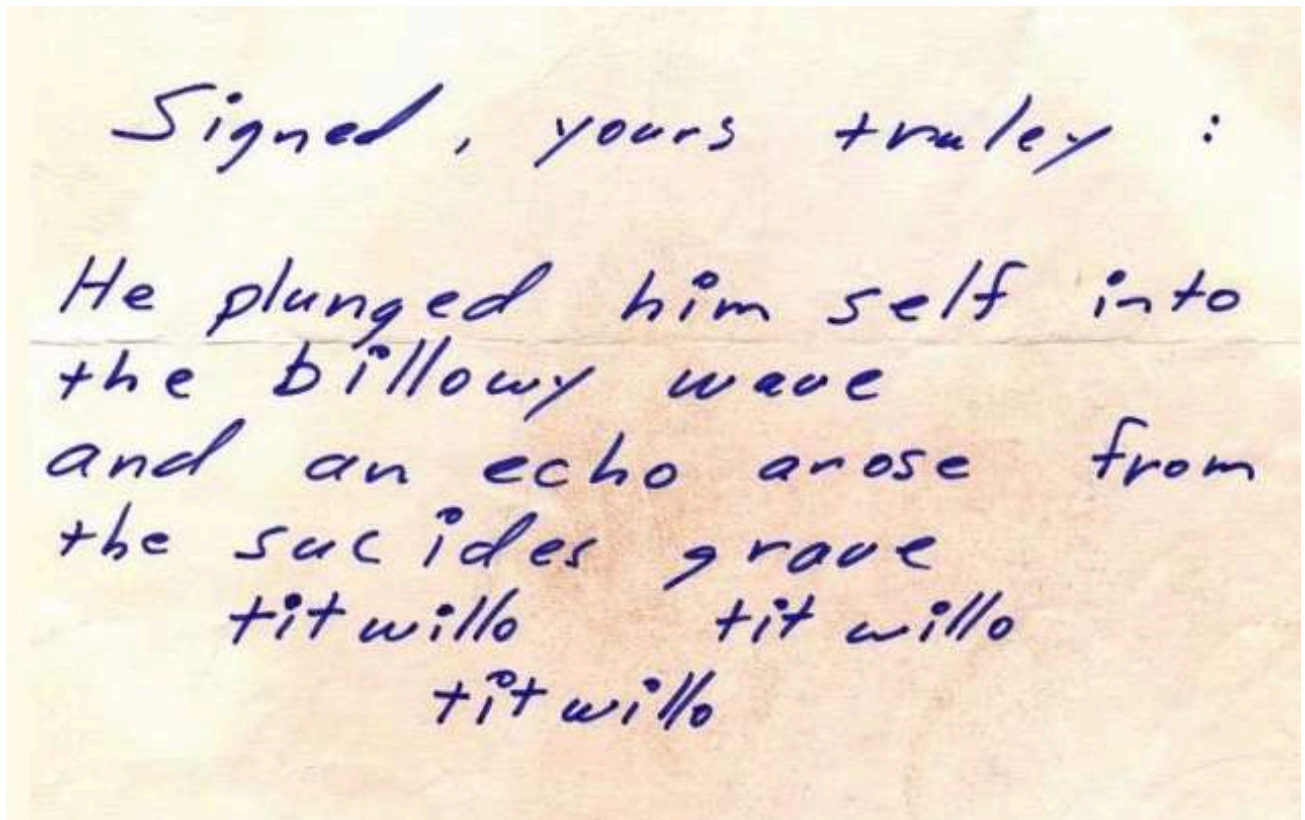 Signed, yours truley :
He plunged him self into
the billowy wave
and an echo arose from
the sucides grave
titwillo tit willo
titwillo